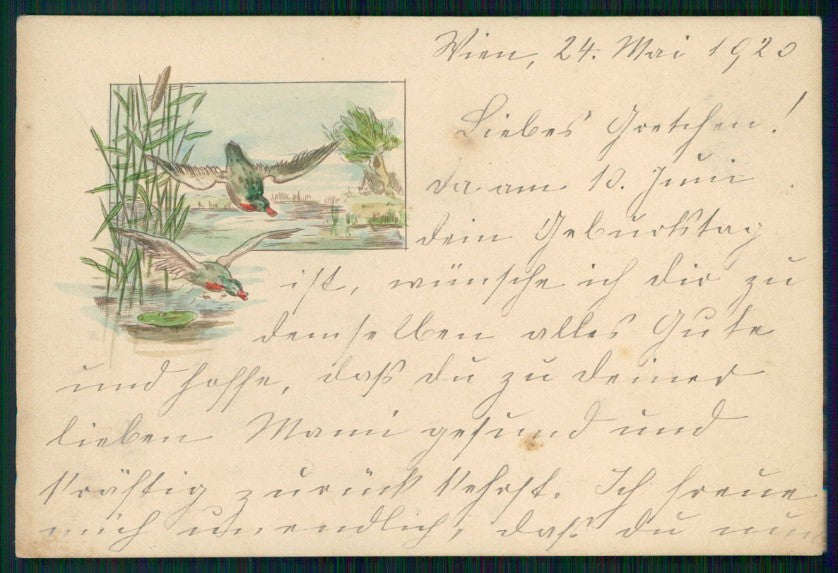 Wien, 24. Mai 1920
Liebes Gretchen!
da am 10. Juni
dein Geburtstag
ist, wünsche ich dir zu
demselben alles Gute
und hoffe, daß du zu deiner
lieben Mami gesund und
kräftig zurück kehrst. Ich freue
mich unendlich, daß du nun